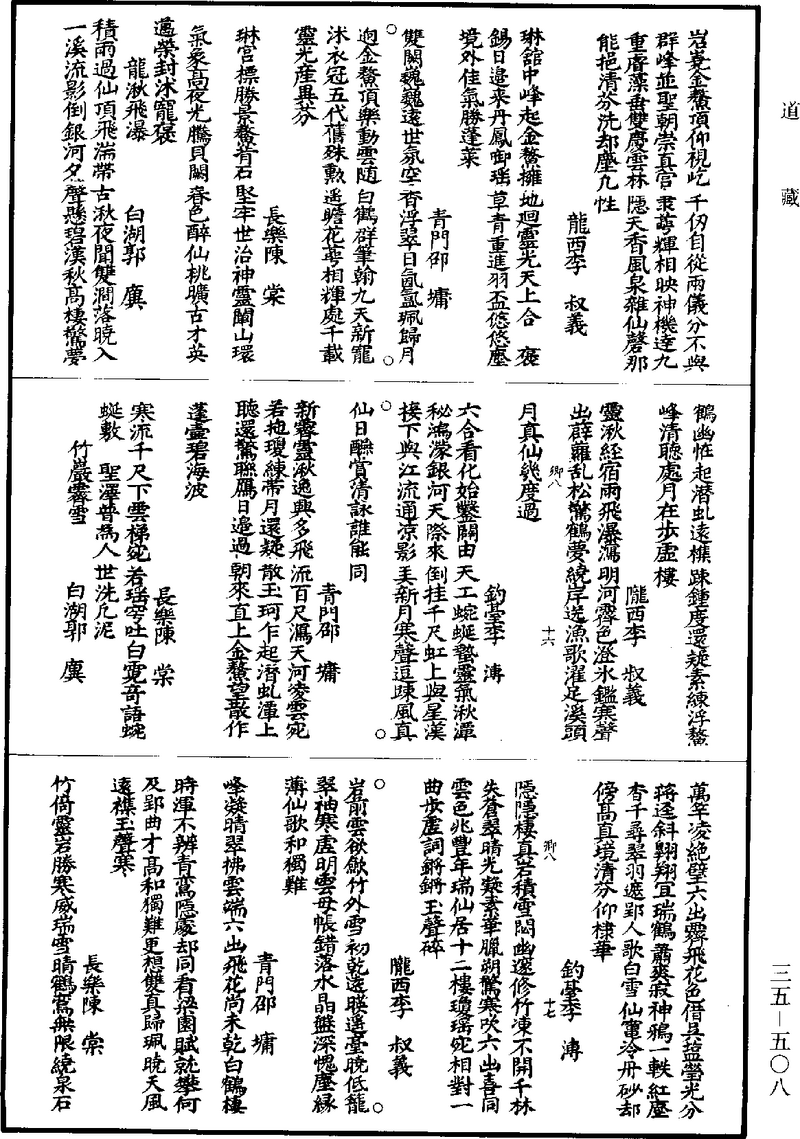 道藏
岩嶤金鰲頂仰視屹千仞自從兩儀分不與
群峰並聖朝崇真官隶萼輝相映神機達九
重睿藻垂雙慶雲林隱天香風泉雜仙磬那
能挹清芬洗却塵凡性
龍西李 叔義
琳舘中峰起金鰲擁地迴靈光天上合褒
錫日邊來丹鳳御瑶草青重進羽盃悠悠塵
境外佳氣勝蓬萊
青門邵 墉
○雙闕巍巍遠世氛空香浮翠日氤氲珮歸月○
迥金鰲頂樂動雲随白鶴群筆翰九天新寵
沭衣冠五代舊殊勲遥瞻花萼相輝處千載
靈光産異芬
長樂陳 棠
琳宫標勝景鰲脊石堅牢世治神靈闡山環
氣象高夜光騰貝闕春色醉仙桃曠古才英
邁榮封沐寵褒
龍湫飛瀑
白湖郭 廙
積雨過仙頂飛湍帶古湫夜聞雙澗落曉入
一溪流影倒銀河夕聲懸碧漢秋髙樓驚夢
鶴幽恠起潜虬遠樵踈鍾度還疑素練浮鰲
峰清聽處月在步虚樓
隴西李 叔義
靈湫經宿雨飛瀑瀉明河霽色澄氷鑑寒聲
出薜蘿乱松驚鶴夢繞岸送漁歌濯足溪頭
月真仙幾度過
鄉八 十六
釣臺李 漙
六合看化始鑿闢由天工蜿蜒蟄靈氣湫潭
秘鴻濛銀河天際來倒挂千尺虹上與星漢
○接下與江流通凉影弄新月寒聲逗踈風真○
仙日酣賞清詠誰能同
青門邵 墉
新霽靈湫逸興多飛流百尺瀉天河凌雲宛
若拖瓊練帶月還疑散玉珂乍起潜虬潭上
聽還驚聮鴈日邉過朝來直上金鰲望散作
蓬壷碧海波
長樂陳 棠
寒流千尺下雲梯宛若瑶穹吐白霓奇語蜿
蜒敷 聖澤普爲人世洗凡泥
竹巖霽雪
白湖郭 廙
萬竿凌絶壁六出霽飛花色借吴塩瑩光分
蒋逕斜翺翔宜瑞鶴蕭爽寂神鴉一軼紅塵
杳千尋翠羽遮郢人歌白雪仙竃冷丹砂却
傍髙真境清芬仰棣華
釣臺李 漙
鄉八 十七
隠隠棲真岩積雪閟幽邃修竹凍不開千林
失蒼翠晴光凝素華臘朔驚寒吹六出喜同
雲色兆豐年瑞仙居十二樓瓊瑶宛相對一
曲步虚詞鏘鏘玉聲碎
隴西李 叔義
○岩前雲欲歛竹外雪初乾遠睽遥臺晚低籠○
翠袖寒虚明雲母帳錯落水晶盤深愧塵縁
薄仙歌和獨難
青門邵 墉
峰凝晴翠拂雲端六出飛花尚未乾白鶴棲
時渾不辨青鸞隠處却同看梁園賦就攀何
及郢曲才髙和獨難更想雙真歸珮晚天風
遠襍玉聲寒
長樂陳 棠
竹倚靈岩勝寒威瑞雪晴鶴鸞無限繞泉石
三五—五〇八